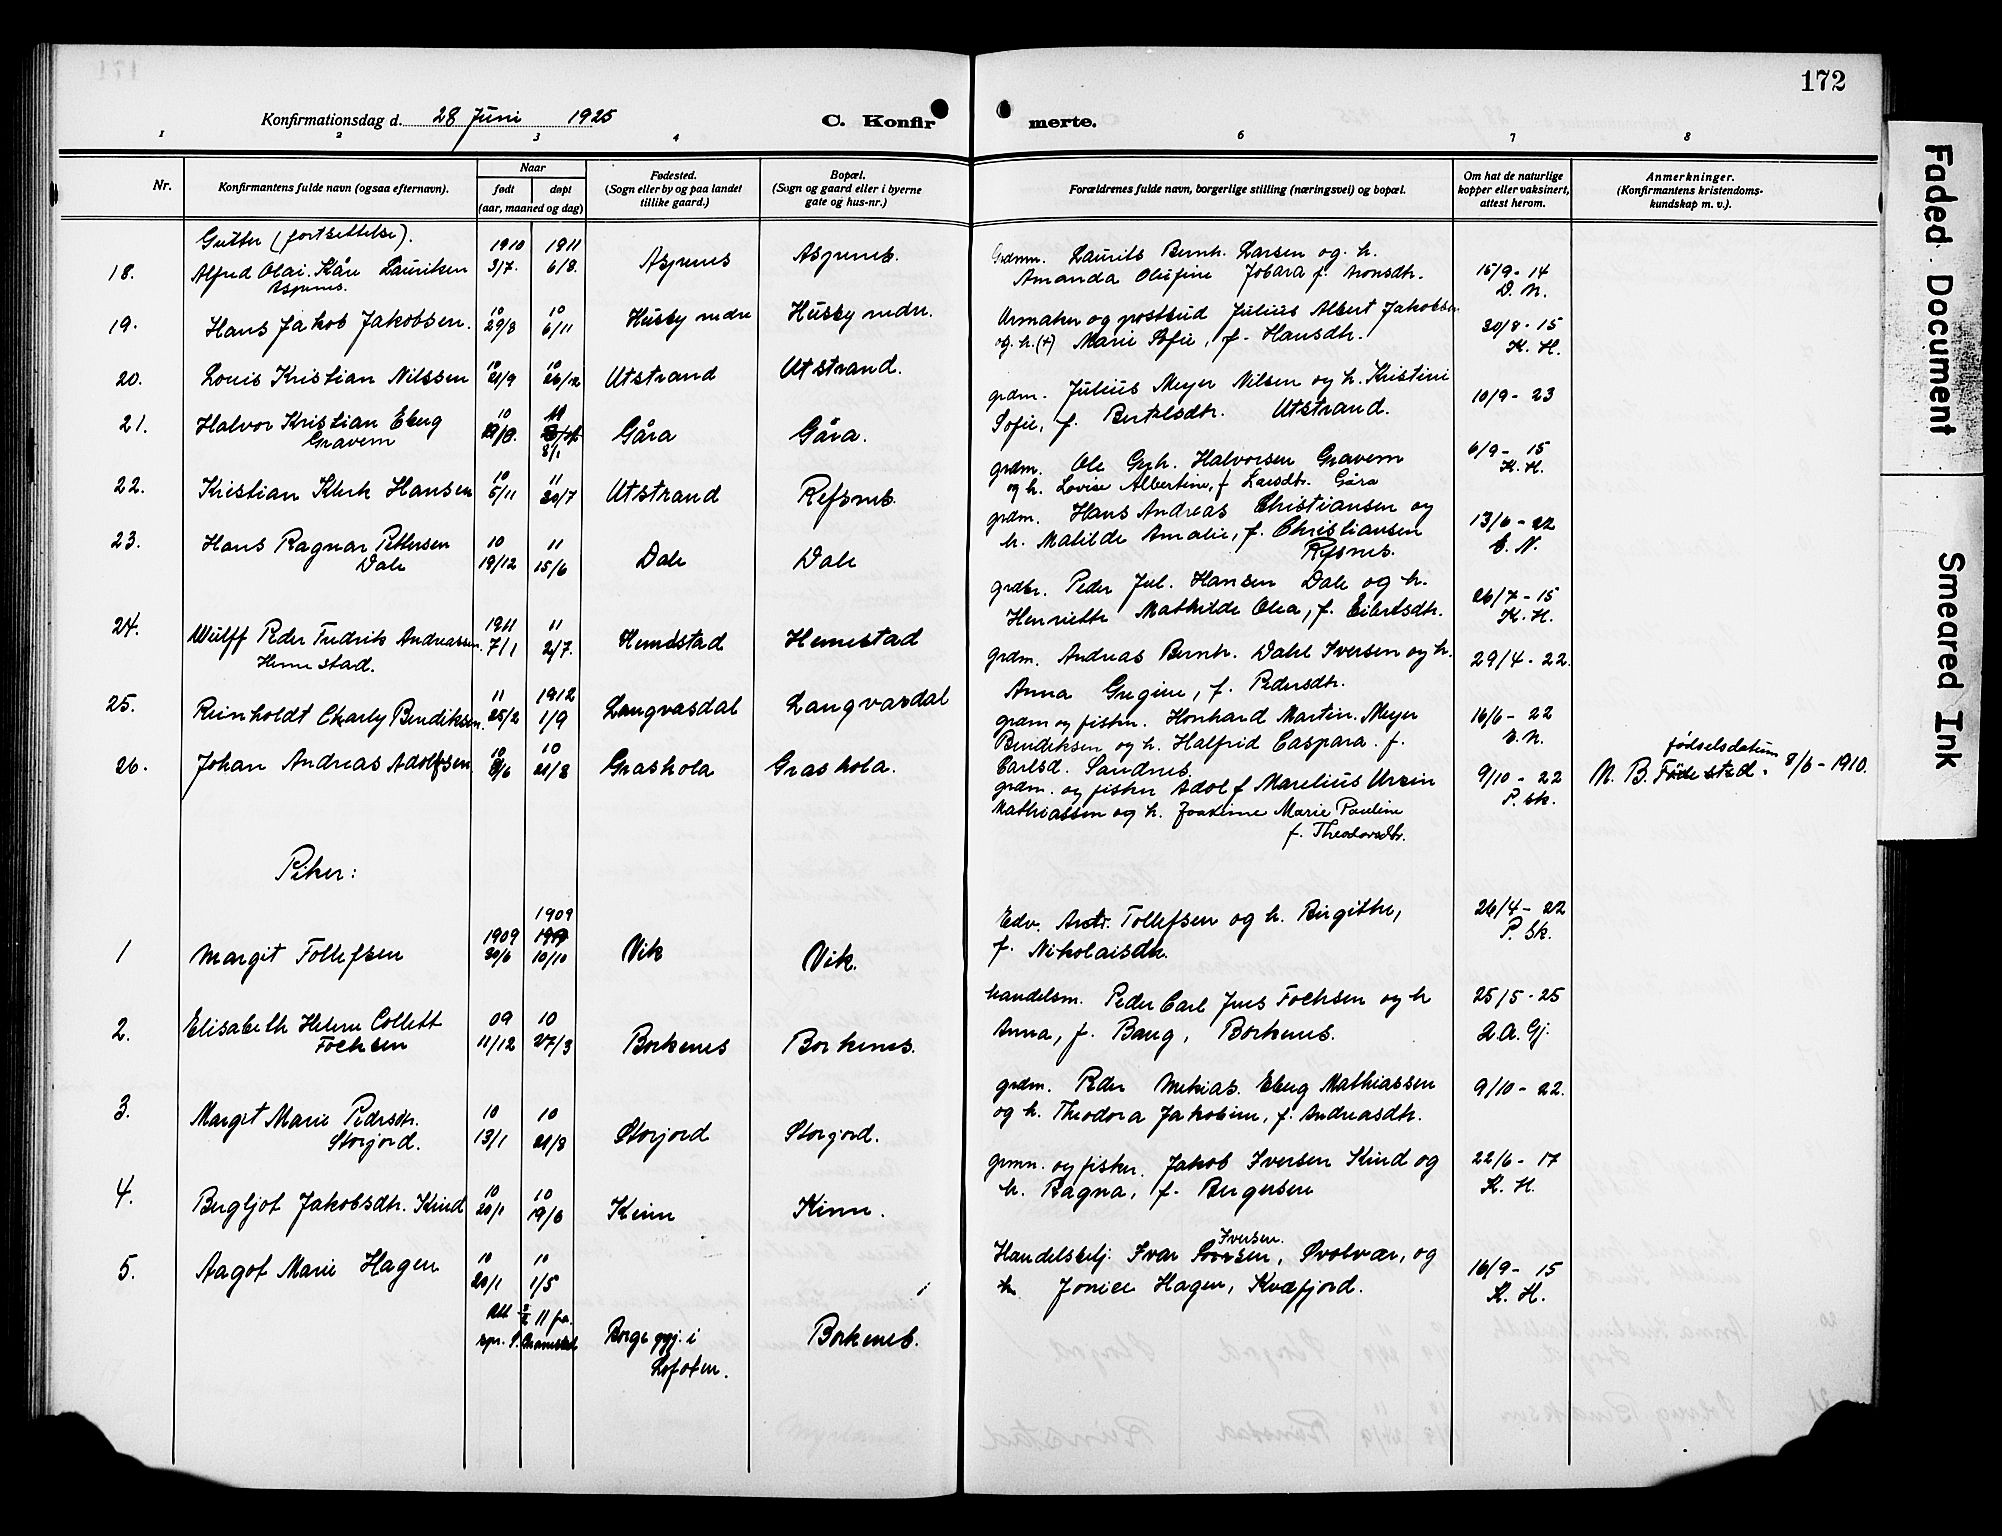 172
Konfirmationsdag d. 28 Juni 1925
C. Konfir merte.
1 2 3 4 6 7 8
Nr.
Konfirmantens fulde navn (ogsaa efternavn).
Naar
født
døpt
(aar, maaned og dag)
Fødested.
(Sogn eller by og paa landet
tillike gaard.)
Bopæl.
(Sogn og gaard eller i byerne
gate og hus-nr.)
Forældrenes fulde navn, borgerlige stilling (næringsvei) og bopæl.
Om hat de naturlige
kopper eller vaksinert,
attest herom.
Anmerkninger.
(Konfirmantens kristendoms-
kundskap m. v.).
Gutter (fortsettelse).
1910 1911
18. Alfred Olai Kåre Lauritsen 3/7. 6/8. Aspenes Aspenes.
Aspenes.
Laurits Bernh. Larsen og h.
Amanda Olufine Jobara f. Aronsdtr.
15/9 - 14
D. N.
10 10
19. Hans Jakob Jakobsen. 29/8 6/11 Husby nedre Husby nedr.
Urmaker og postbud Julius Albert Jakobsen
og h. (+) Marie Sofie, f. Hansdtr.
20/8 - 15
K. H.
10 10
20. Louis Kristian Nilssen 21/9 26/12 Utstrand Utstrand.
grdm. Julius Meyer Nilsen og h. Kristine
Sofie, f. Bertelsdtr. Utstrand.
10/9 - 23
10 11
21. Halvor Kristian Eberg Gåra Gåra.
Gravem 8/1
grdm. Ole Halvorsen Gravem
og h. Lovise Albertine, f. Larsdtr. Gåra
6/9 - 15
K. H.
10 11
22. Kristian Klerk Hansen 5/11 30/7 Utstrand Refsnes.
grdm. Hans Andreas Christiansen og
h. Matilde Amalie, f. Christiansen
Refsnes.
13/6 - 22
E. N.
10 11
23. Hans Ragnar Pettersen 19/12 15/6 Dale Dale
Dale
grdbr. Peder Jul. Hansen Dale og h.
Henriette Mathilde Olea, f. Eilertsdtr.
26/7 - 15
K. H.
1911 11
24. Wulff Peder Fredrik Andreassen. 7/1 2/7. Hemestad Hemestad
Hemestad.
grdm. Andreas Bernh. Dahl Iversen og h.
Anna Gregine, f. Pedersdtr.
29/4 - 22.
11 1912
25. Reinholdt Charly Bendiksen. 25/2 1/9 Langvasdal Langvasdal
grdm og fisker. Honhard Martin Meyer
Bendiksen og h. Halfrid Caspara f.
Carlsd. Sandnes.
16/6 - 22
E. N.
10 10
26. Johan Andreas Adolfsen 8/6 21/8 Grashola Grashola.
grdm. og fisker Adolf Marelius Ursin
Mathiassen og h. Joakime Marie Pauline
f. Theodorsdtr.
9/10 - 22
P. Sk.
fødselsdatum
N. B. Fødested. 8/6 - 1910.
Piker:
1909
1909
1 Margit Tollefsen 30/6 10/10 Vik Vik.
Edv. Andr. Tollefsen og h. Birgitte,
f. Nikolaisdtr.
26/4 - 22
P. Sk.
09 10
2. Elisabeth Helene Collett 11/12 27/3 Borkenes Borkenes.
Fochsen
handelsm. Peder Carl Jens Fochsen og h
Anna, f. Baug, Borkenes.
25/5 - 25
L. A. Gj.
10 10
3. Margit Marie Pedersdtr. 13/1 21/8 Storjord Storjord.
Storjord.
grdm. Peder Mekias Eberg Mathiassen
og h. Theodora Jakobine, f. Andreasdtr.
9/10 - 22.
10 10
4. Bergljot Jakobsdtr. Kind 20/1 19/6 Kinn Kinn.
grmn. og fisker. Jakob Iversen Kind og
h. Ragna, f. Bergersen
22/6 - 17
K. H.
10 10
5. Aagot Marie Hagen 20/1 1/5
Att. 11 fra
Borge pgj. i Borkenes.
Lofoten.
Iversen.
Handelsbetj. Ivar Svolvær, og
Jonice Hagen, Kvæfjord.
16/9 - 15
K. H.
Faded Document
Smeared Ink